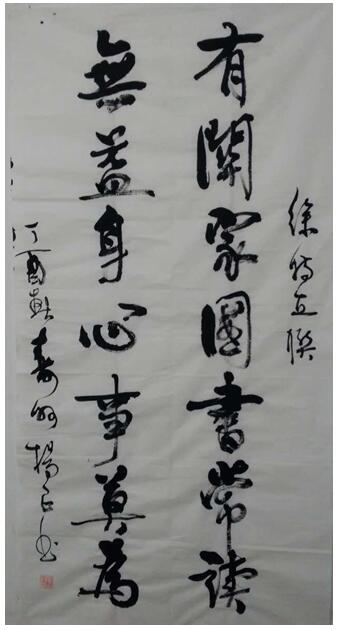 徐特立聯
有關家國書常讀
無益身心事莫為
丁酉秋壽州楊書